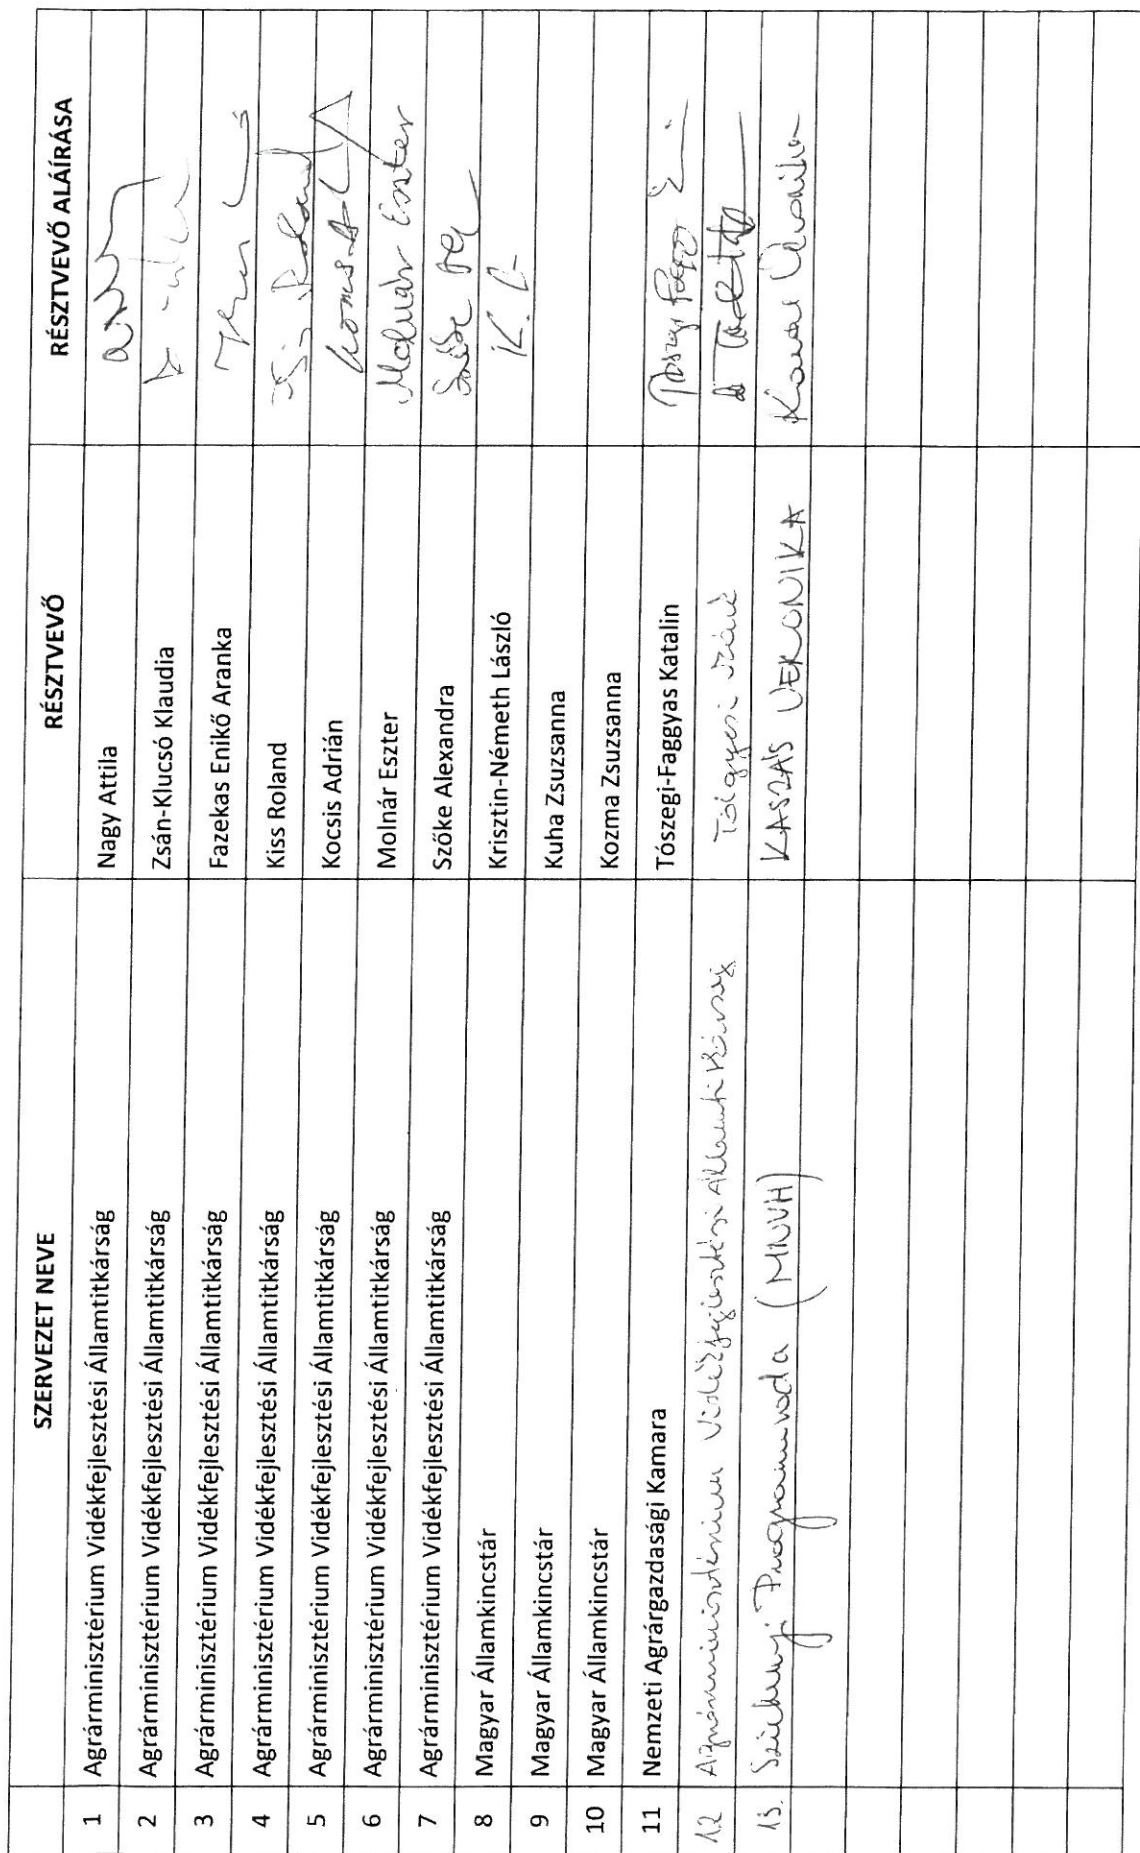 SZERVEZET NEVE RÉSZTVEVŐ RÉSZTVEVŐ ALÁÍRÁSA
1 Agrárminisztérium Vidékfejlesztési Államtitkárság Nagy Attila
2 Agrárminisztérium Vidékfejlesztési Államtitkárság Zsán-Klucsó Klaudia
3 Agrárminisztérium Vidékfejlesztési Államtitkárság Fazekas Enikő Aranka
4 Agrárminisztérium Vidékfejlesztési Államtitkárság Kiss Roland
5 Agrárminisztérium Vidékfejlesztési Államtitkárság Kocsis Adrián
6 Agrárminisztérium Vidékfejlesztési Államtitkárság Molnár Eszter Molnár Eszter
7 Agrárminisztérium Vidékfejlesztési Államtitkárság Szőke Alexandra
8 Magyar Államkincstár Krisztin-Németh László
9 Magyar Államkincstár Kuha Zsuzsanna
10 Magyar Államkincstár Kozma Zsuzsanna
11 Nemzeti Agrárgazdasági Kamara Tószegi-Faggyas Katalin
12 Agrárminisztérium Vidékfejlesztési Államtitkárság Tölgyesi
13. Széchenyi Programiroda (MNVH) KASZÁS VERONIKA